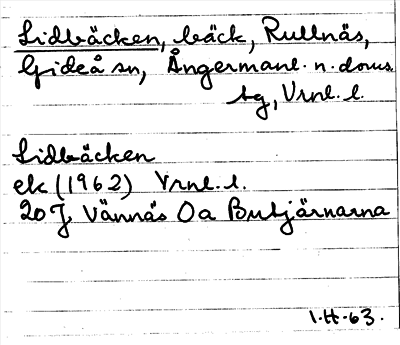 Lidbäcken, bäck, Rullnäs,
Gideå sn, Ångermanl. n. doms
sg, Vrnl. l.
Lidbäcken
ek (1962) Vrnl. l.
20 J Vännäs Oa Bubjärnarna
1.H.63.